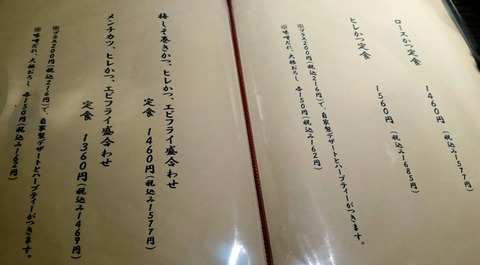 ロースかつ定食　1460円(税込み1577円)
ヒレかつ定食　1560円(税込み1685円)
※プラス200円(税込216円)で、自家製デザートとハーブティーがつきます。
※味噌だれ、大根おろし　各150円(税込み162円)
梅しそ巻きかつ、ヒレかつ、エビフライ盛合わせ
定食　1460円(税込み1577円)
メンチカツ、ヒレかつ、エビフライ盛合わせ
定食　1360円(税込み1469円)
※プラス200円(税込216円)で、自家製デザートとハーブティーがつきます。
※味噌だれ、大根おろし　各150円(税込み162円)